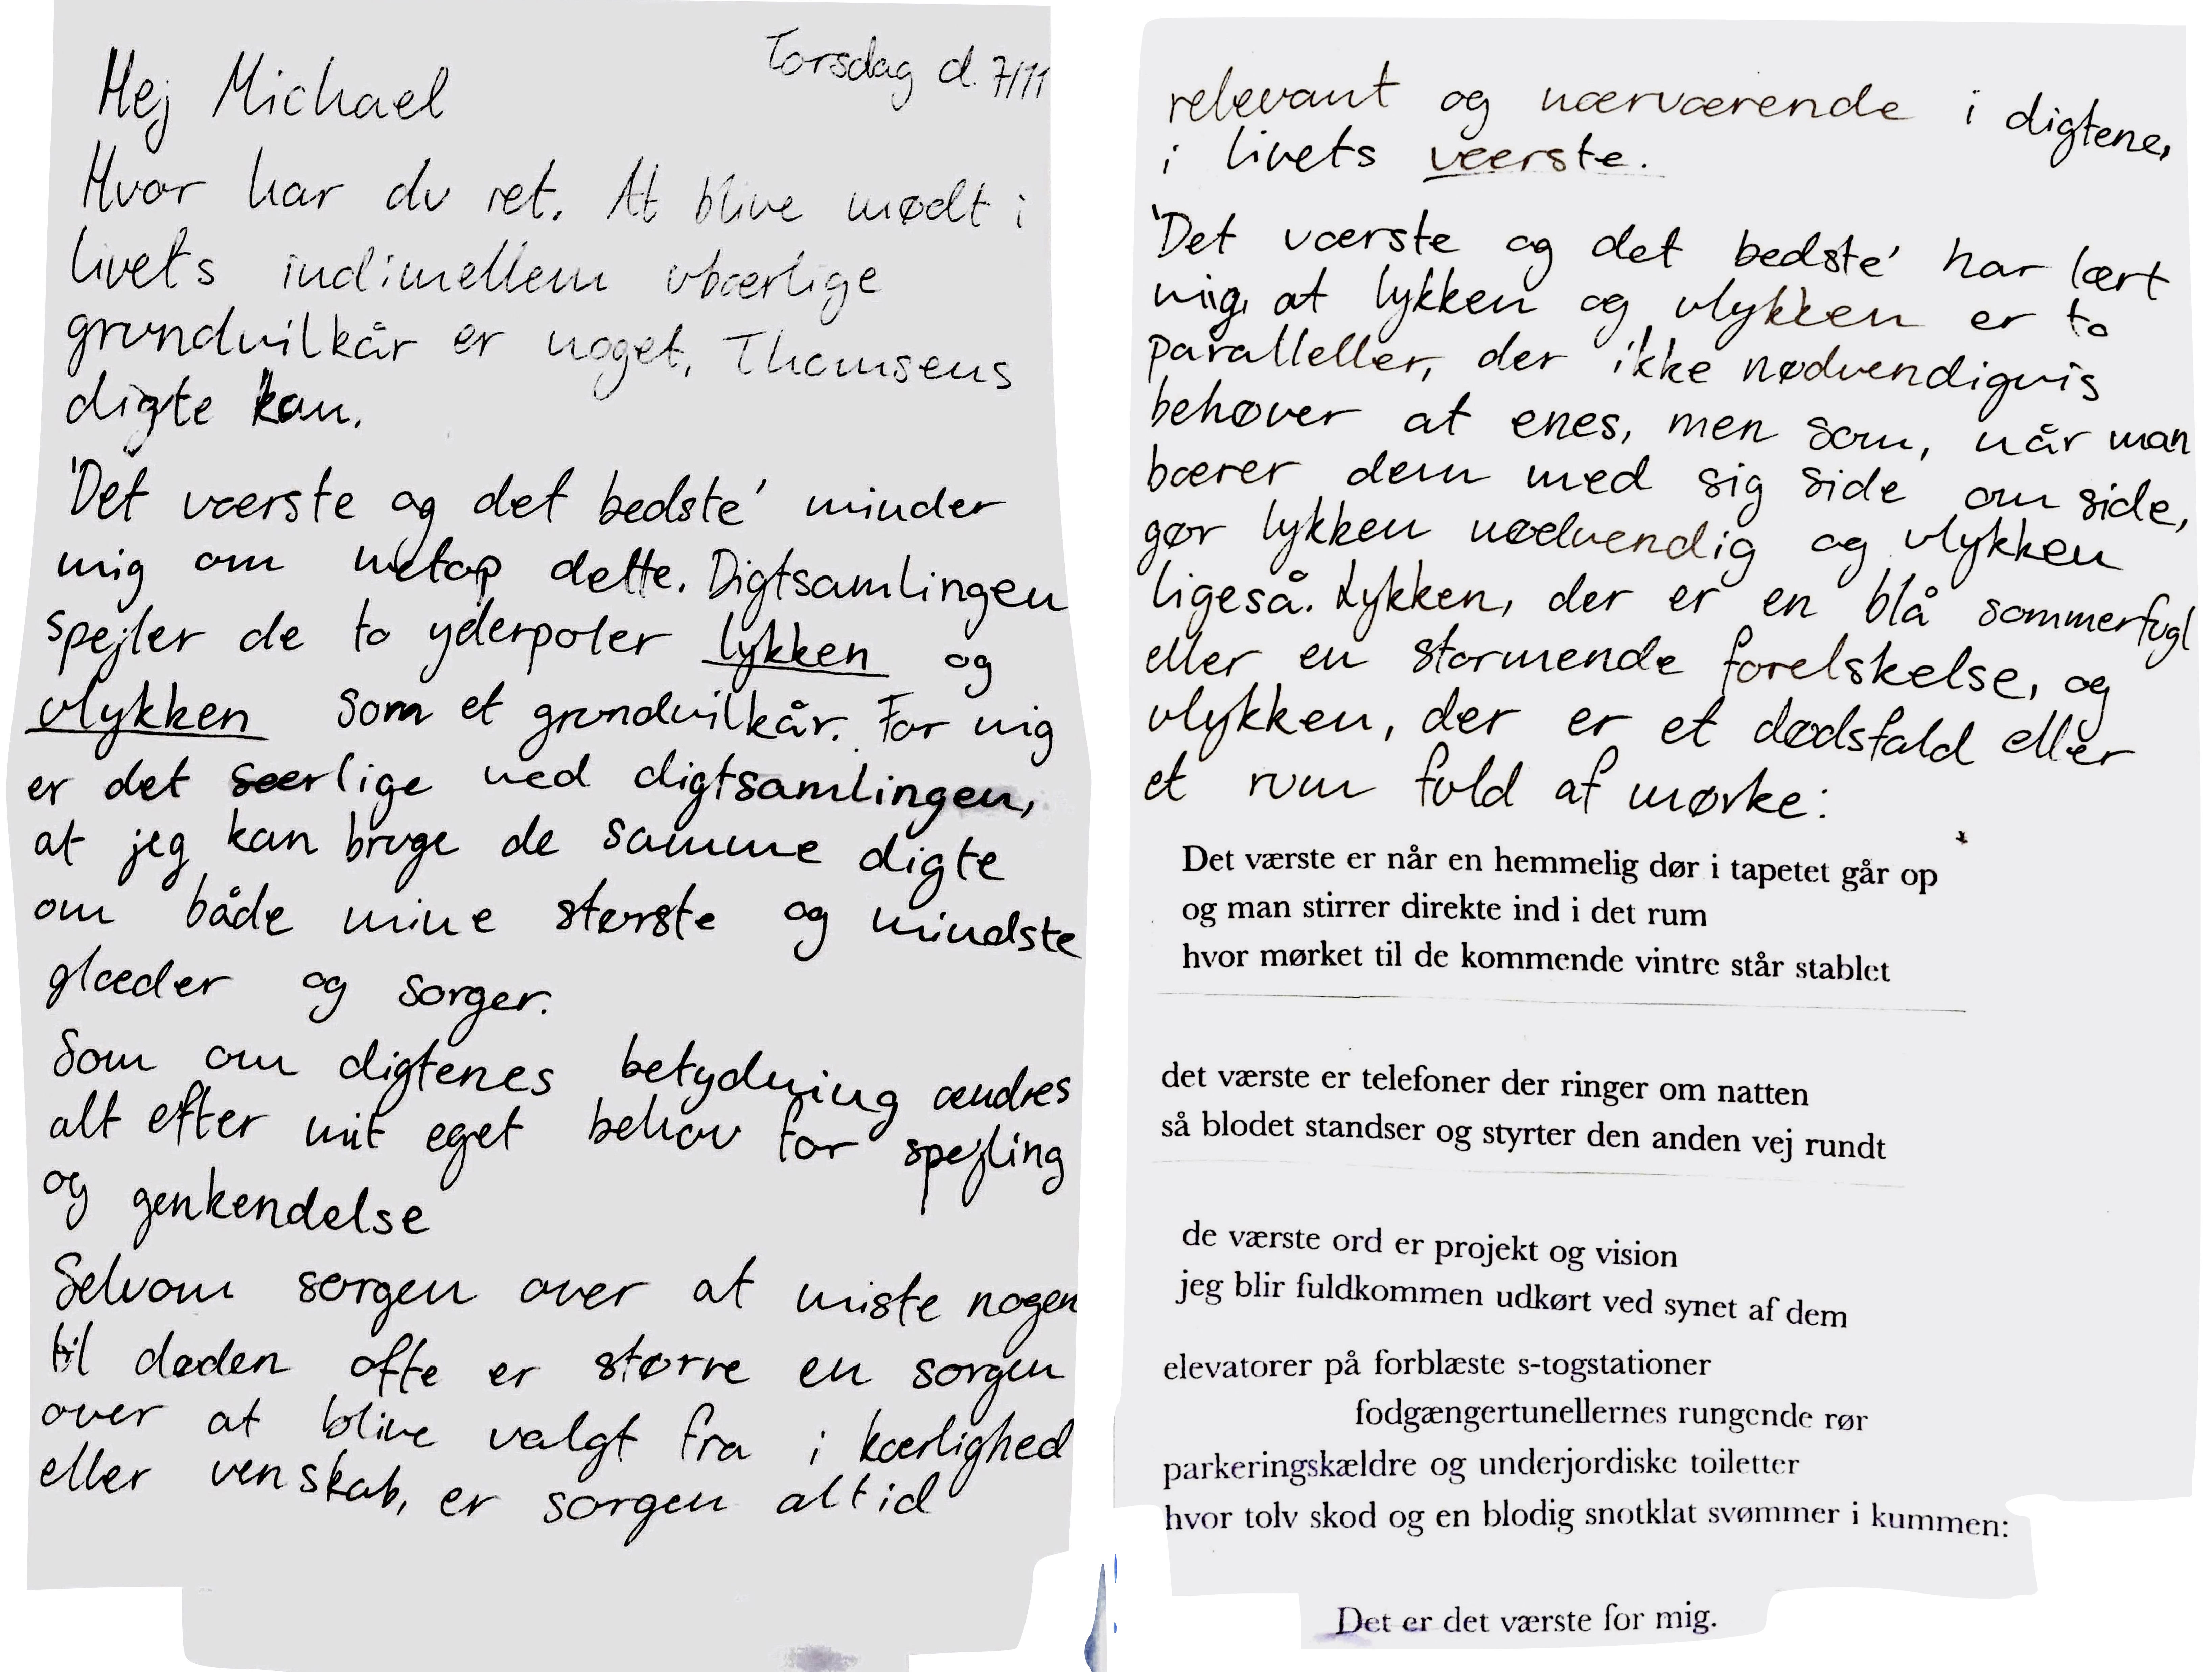 Torsdag d. 7/11
Hej Michael
Hvor har du ret. At blive mødt i
livets indimellem ubærlige
grundvilkår er noget, Thomsens
digte kan.
'Det værste og det bedste' minder
mig om netop dette. Digtsamlingen
spejler de to yderpoler lykken og
ulykken som et grundvilkår. For mig
er det særlige ved digtsamlingen,
at jeg kan bruge de samme digte
om både mine største og mindste
glæder og sorger.
Som om digtenes betydning ændres
alt efter mit eget behov for spejling
og genkendelse
Selvom sorgen over at miste nogen
til døden ofte er større en sorgen
over at blive valgt fra i kærlighed
eller venskab, er sorgen altid
relevant og nærværende i digtene,
i livets værste.
'Det værste og det bedste' har lært
mig, at lykken og ulykken er to
paralleller, der ikke nødvendigvis
behøver at enes, men som, når man
bærer dem med sig side om side,
gør lykken nødvendig og ulykken
ligeså. Lykken, der er en blå sommerfugl
eller en stormende forelskelse, og
ulykken, der er et dødsfald eller
et rum fuld af mørke:
Det værste er når en hemmelig dør i tapetet går op
og man stirrer direkte ind i det rum
hvor mørket til de kommende vintre står stablet
det værste er telefoner der ringer om natten
så blodet standser og styrter den anden vej rundt
de værste ord er projekt og vision
jeg blir fuldkommen udkørt ved synet af dem
elevatorer på forblæste s-togstationer
fodgængertunellernes rungende rør
parkeringskældre og underjordiske toiletter
hvor tolv skod og en blodig snotklat svømmer i kummen:
Det er det værste for mig.